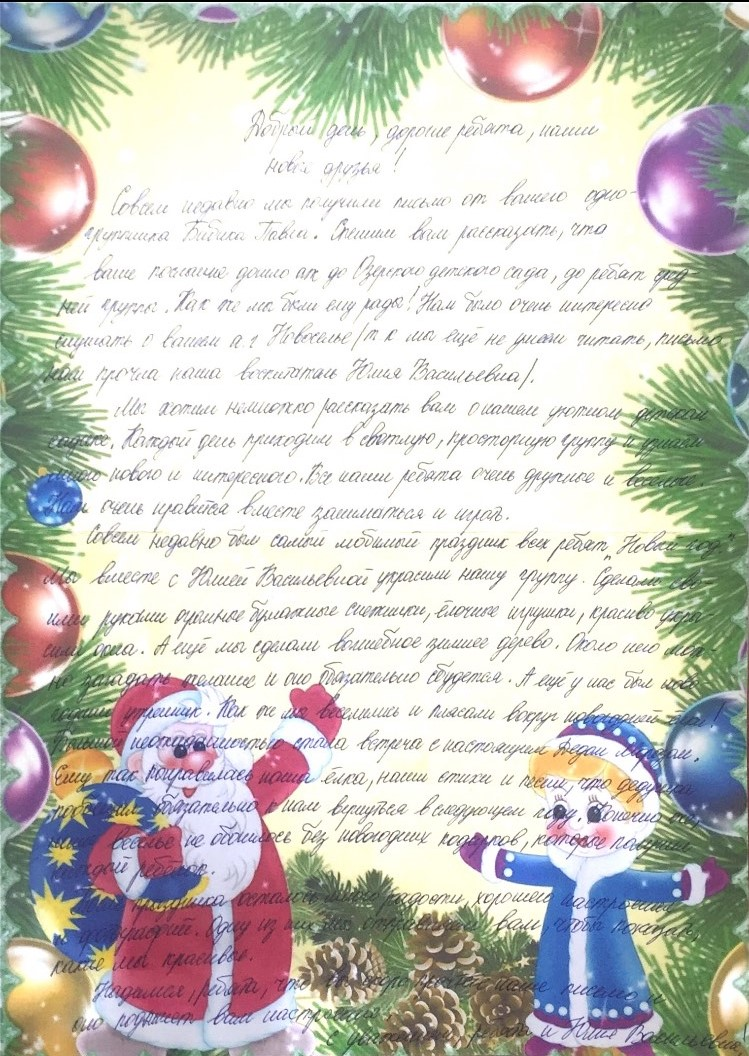 Добрый день, дорогие ребята, наши
новые друзья!
Совсем недавно мы получили письмо от вашего одно-
группника Бибика Павла. Спешим вам рассказать, что
ваше послание дошло аж до Озерского детского сада, до ребят сред
ней группы. Как же мы были ему рады! Нам было очень интересно
слушать о вашем а.г. Новоселье /т к мы ещё не умеем читать, письмо
нам прочла наша воспитатель Юлия Васильевна/.
Мы хотим немножко рассказать вам о нашем уютном детском
садике. Каждый день приходим в светлую, просторную группу и узнаем
много нового и интересного. Все наши ребята очень дружные и веселые.
Нам очень нравится вместе заниматься и играть.
Совсем недавно был самый любимый праздник всех ребят "Новый год".
Мы вместе с Юлией Васильевной украсили нашу группу. Сделали сво-
ими руками огромные бумажные снежинки, ёлочные игрушки, красиво укра
сили окна. А ещё мы сделали волшебное зимнее дерево. Около него мож-
но загадать желание и оно обязательно сбудется. А ещё у нас был ново-
годний утренник. Как же мы веселились и плясали вокруг новогодней ёлки!
Большой неожиданностью стала встреча с настоящим Дедом Морозом.
Ему так понравилась наша ёлка, наши стихи и песни, что дедушка
пообещал обязательно к нам вернуться в следующем году. Конечно же,
веселье не обошлось без новогодних подарков, которые получил
каждый ребёнок.
После праздника осталось много радости, хорошего настроения
и фотографий. Одну из них мы отправляем вам, чтобы показать,
какие мы красивые.
Надеемся, ребята, что вы скоро наше письмо и
оно поднимет вам настроение.
С уважением, ребята и Юлия Васильевна!